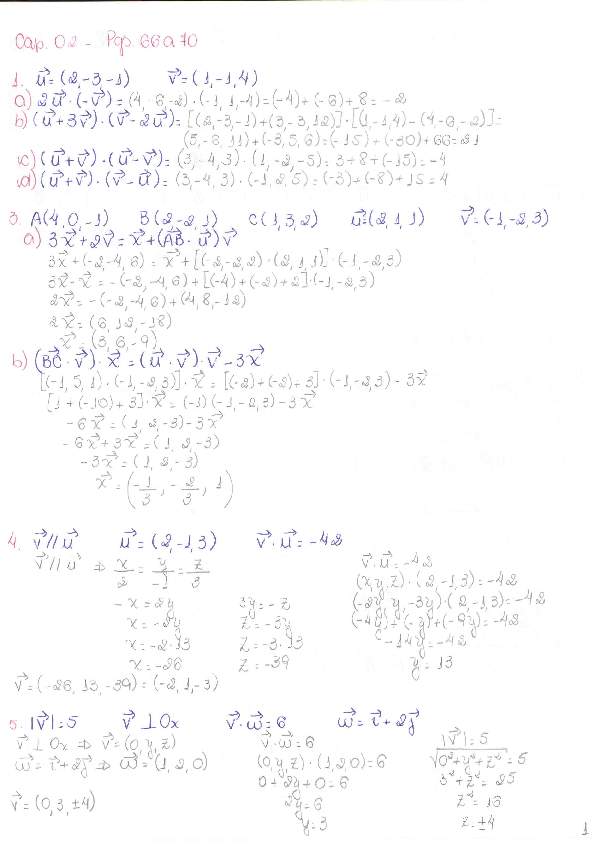 Cap. 02 - Pgs. 66 a 70
1. u⃗ = (2,-3,-1) v⃗ = (1,-1,4)
a) 2u⃗ · (-v⃗) = (4,-6,-2) · (-1,1,-4) = (-4) + (-6) + 8 = -2
b) (u⃗ + 3v⃗) · (v⃗ - 2u⃗) = [(2,-3,-1) + (3,-3,12)] · [(1,-1,4) - (4,-6,-2)] =
(5,-6,11) + (-3,5,6) = (-15) + (-30) + 66 = 21
c) (u⃗ + v⃗) · (u⃗ - v⃗) = (3,-4,3) · (1,-2,-5) = 3 + 8 + (-15) = -4
d) (u⃗ + v⃗) · (v⃗ - u⃗) = (3,-4,3) · (-1,2,5) = (-3) + (-8) + 15 = 4
3. A(4,0,-1) B(2,-2,1) C(1,3,2) u⃗ = (2,1,1) v⃗ = (-1,-2,3)
a) 3x⃗ + 2v⃗ = x⃗ + (AB⃗ · u⃗) v⃗
3x⃗ + (-2,-4,6) = x⃗ + [(-2,-2,2) · (2,1,1)] · (-1,-2,3)
3x⃗ - x⃗ = -(-2,-4,6) + [(-4) + (-2) + 2] · (-1,-2,3)
2x⃗ = -(-2,-4,6) + (4,8,-12)
2x⃗ = (6,12,-18)
x⃗ = (3,6,-9)
b) (BC⃗ · v⃗) · x⃗ = (u⃗ · v⃗) · v⃗ - 3x⃗
[(-1,5,1) · (-1,-2,3)] · x⃗ = [(-2) + (-2) + 3] · (-1,-2,3) - 3x⃗
[1 + (-10) + 3] · x⃗ = (-1)(-1,-2,3) - 3x⃗
-6x⃗ = (1,2,-3) - 3x⃗
-6x⃗ + 3x⃗ = (1,2,-3)
-3x⃗ = (1,2,-3)
x⃗ = (-1/3, -2/3, 1)
4. v⃗ // u⃗ u⃗ = (2,-1,3) v⃗ · u⃗ = -42
v⃗ // u⃗ ⇒ x/2 = y/-1 = z/3
-x = 2y
x = -2y
x = -2·13
x = -26
3y = -z
z = -3y
z = -3·13
z = -39
v⃗ · u⃗ = -42
(x,y,z) · (2,-1,3) = -42
(-2y, y, -3y) · (2,-1,3) = -42
(-4y) + (-y) + (-9y) = -42
-14y = -42
y = 13
v⃗ = (-26,13,-39) = (-2,1,-3)
5. |v⃗| = 5 v⃗ ⊥ Ox v⃗ · w⃗ = 6 w⃗ = i⃗ + 2j⃗
v⃗ ⊥ Ox ⇒ v⃗ = (0,y,z)
w⃗ = i⃗ + 2j⃗ ⇒ w⃗ = (1,2,0)
v⃗ = (0,3,±4)
v⃗ · w⃗ = 6
(0,y,z) · (1,2,0) = 6
0 + 2y + 0 = 6
2y = 6
y = 3
|v⃗| = 5
√0² + y² + z² = 5
3² + z² = 25
z² = 16
z = ±4
1